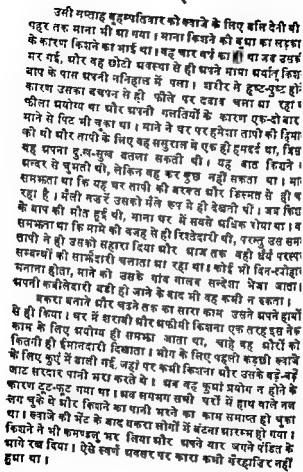 उसी सप्ताह बृहस्पतिवार को ख्वाजे के लिए बलि देनी थी
पहर तक माना भी आ गया। माना किशने की बुआ का लड़का
के कारण किशने का भाई था। वह चार वर्ष का था जब उसके
मर गई, और वह छोटी अवस्था से ही अपने मामा अर्थात् किशने
बाप के पास अपनी ननिहाल में पला। शरीर से हृष्ट-पुष्ट होने
कारण उसका बचपन से ही फीले पर दबाव चला आ रहा
फीला अयोग्य था और अपनी गलतियों के कारण एक-दो बार
माने से पिट भी चुका था। माने ने घर पर हमेशा तापी की
की थी और तापी के लिए वह ससुराल में एक ही हमदर्द था, जिसे
वह अपना दुःख-सुख बतला सकती थी। यह बात किशने
अन्दर से चुभती थी, लेकिन वह कर कुछ नहीं सकता था।
समझता था कि यह घर तापी की बरकत और हिम्मत से ही
रहा है। मैली नजरें उसको मैले रूप में ही देखती थीं। जब
के बाप की मौत हुई थी, माना घर में सबसे अधिक रोया था।
समझता था कि मामे की वजह से ही रिश्तेदारी थी, परन्तु उस समय
तापी ने ही उसको सहारा दिया और आज तक वही धैर्य परस्पर
सम्बन्धों की साझेदारी चलाता आ रहा था। कोई भी दिन-त्योहार
मनाना होता, माने को उसके गांव सन्देशा भेजा जाता।
अपनी कबीलदारी बड़ी हो जाने के बाद भी वह कभी न रुकता।
बकरा बनाने और चढ़ने तक का सारा काम उसने अपने हाथों
से ही किया। घर में शराबी और अफीमी किशना एक तरह इस नेक
काम के लिए अयोग्य ही समझा जाता था, चाहे वह औरों को
कितनी ही ईमानदारी दिखाता। भोग के लिए पहली कड़छी ख्वाजे
के लिए कुएं में डाली गई, जहां पर कभी किशना और उसके बड़े-बड़े
जाट सरदार पानी भरा करते थे। अब वह कुआं प्रयोग न होने के
कारण टूट-फूट गया था। अब लगभग सभी घरों में हाथ वाले नल
लग चुके थे और किशने का पानी भरने का काम समाप्त हो चुका
था। ख्वाजे की भेंट के बाद बकरा लोगों में बंटना प्रारम्भ हो गया।
किशने ने भी कमण्डल भर लिया और अपने यार जागने पंडित के
आगे रख दिया। ऐसे स्वर्ण अवसर पर कारा कभी गैरहाजिर नहीं
हुआ था।